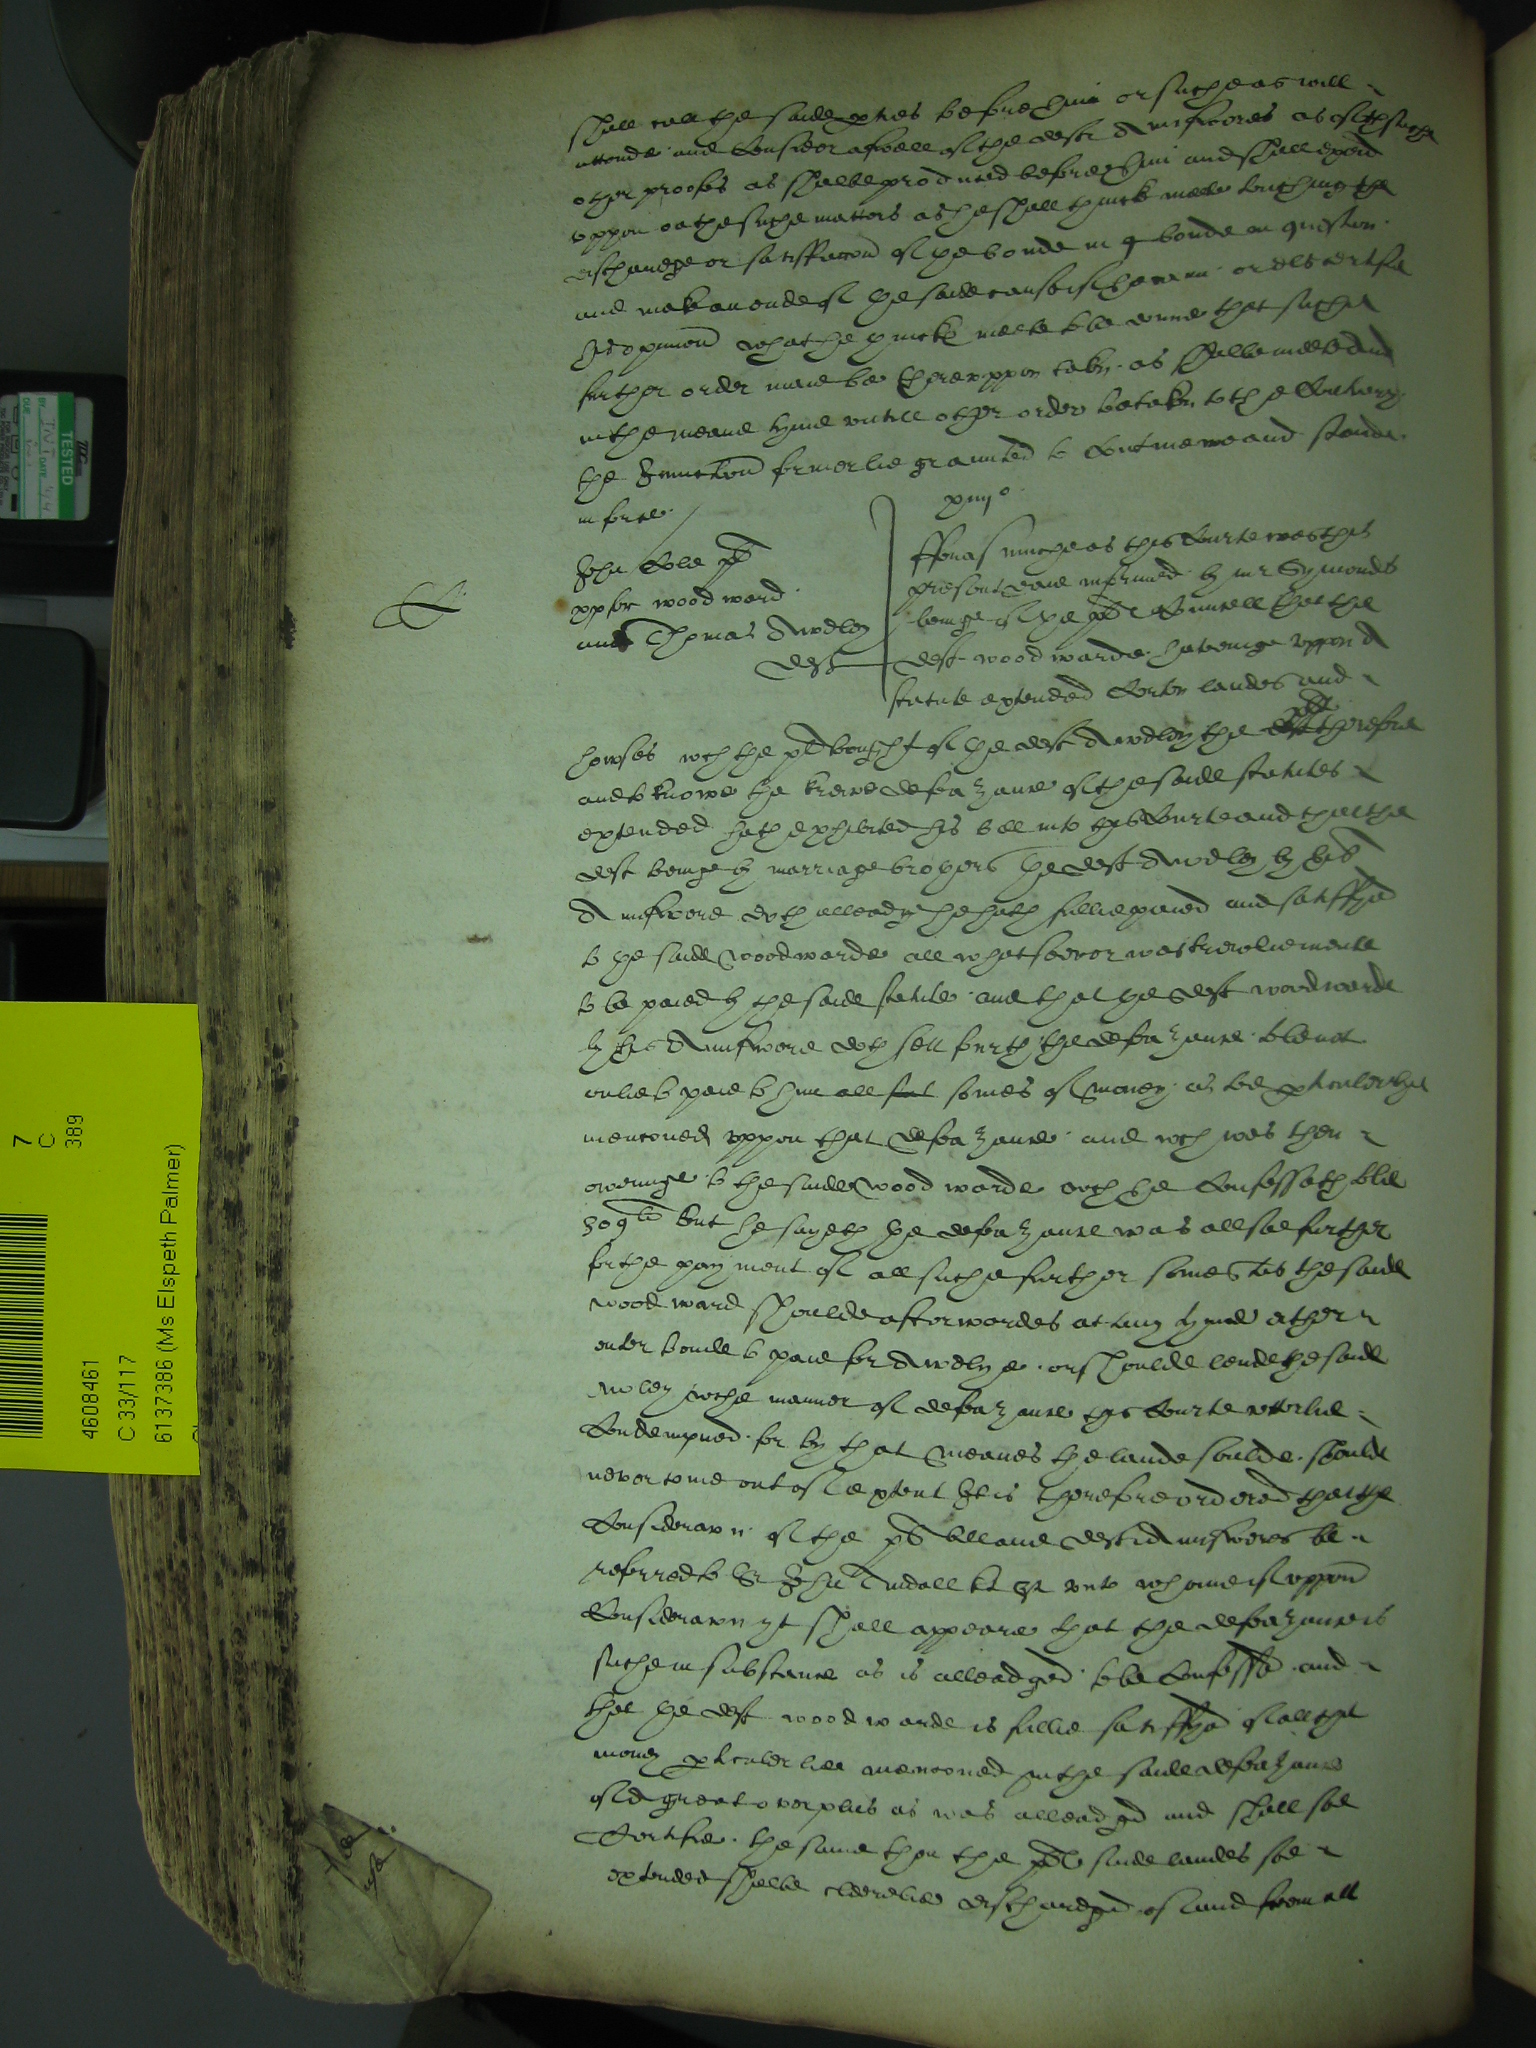 shall call the saide pties before him or suche as will
attende and Consider aswell of the deftes Aunsweres as of suche
other proofes as shalbe produced before him and shall exaīe
uppon oathe suche matters as he shall thinck meete touching the
dischardge or satisffaccon of the bonde in question
and make an ende of the saide cause if he can or els certifie
his opinion what he thincke meete to be donne that suche
further order maie be thereuppon taken as shalbe meete and
in the meane tyme untill other order be taken to the Contrary
the Iniunction formerlie graunted to Contineue and stande
in force
John Cole plt
woodward
and Thomas Awdley
deft
xiiijo
fforasmuche as this Courte was this
present daie informed by mr Symondes
beinge of the plts Counsell that the
deft woodwarde haveinge uppon A
statute extended Certen landes and
howses wch the plt bought of the deft Awdley the plt therefore
and to knowe the trewe defeazance of the saide statutes
extended hath exhibited his bill into this Courte and that the
deft beinge by marriage brothers the deft Awdley by his
Aunswere doth alleadge he hath fullie paied and satisffyed
to the saide woodwarde all whatsoever was trewlie mente
to be paied by the saide statute and that the deft woodwarde
by his Aunswere doth sett furth the defeazance to be not
onlie to paie to him all somes of money as be pticulerlye
mencioned uppon that defeazance and wch was then
oweinge to the saide woodwarde wch he Confesseth to be
309li but he sayeth the defeazance was allsoe further
for the payment of all suche further somes as the saide
woodward shoulde afterwardes at any tyme ether
enter bonde to paie for Awdlye or shoulde lende the saide
Awdley wche manner of defeazance this Courte utterlie
Condempned for by that meanes the lande soulde shoulde
never come out of extent It is therefore ordered that the
Consideracon of the plts bill and deftes Aunsweres be
referred to Sr John Tindall kt unto whome if uppon
Consideracon yt shall appeare that the defeazance is
suche in substance as is alleadged to be Confessed and
that the deft woodwarde is fullie satisffyed of all the
money pticulerlie mencioned in the saide defeazance
of A great overplus as was alleadged and shall soe
Certifie the same then the plts saide landes soe
extended shalbe cleerelie dischardged of and from all
TESTED
DATE
DUE
7
C
389
4608461
C 33/117
6137386 (Ms Elspeth Palmer)